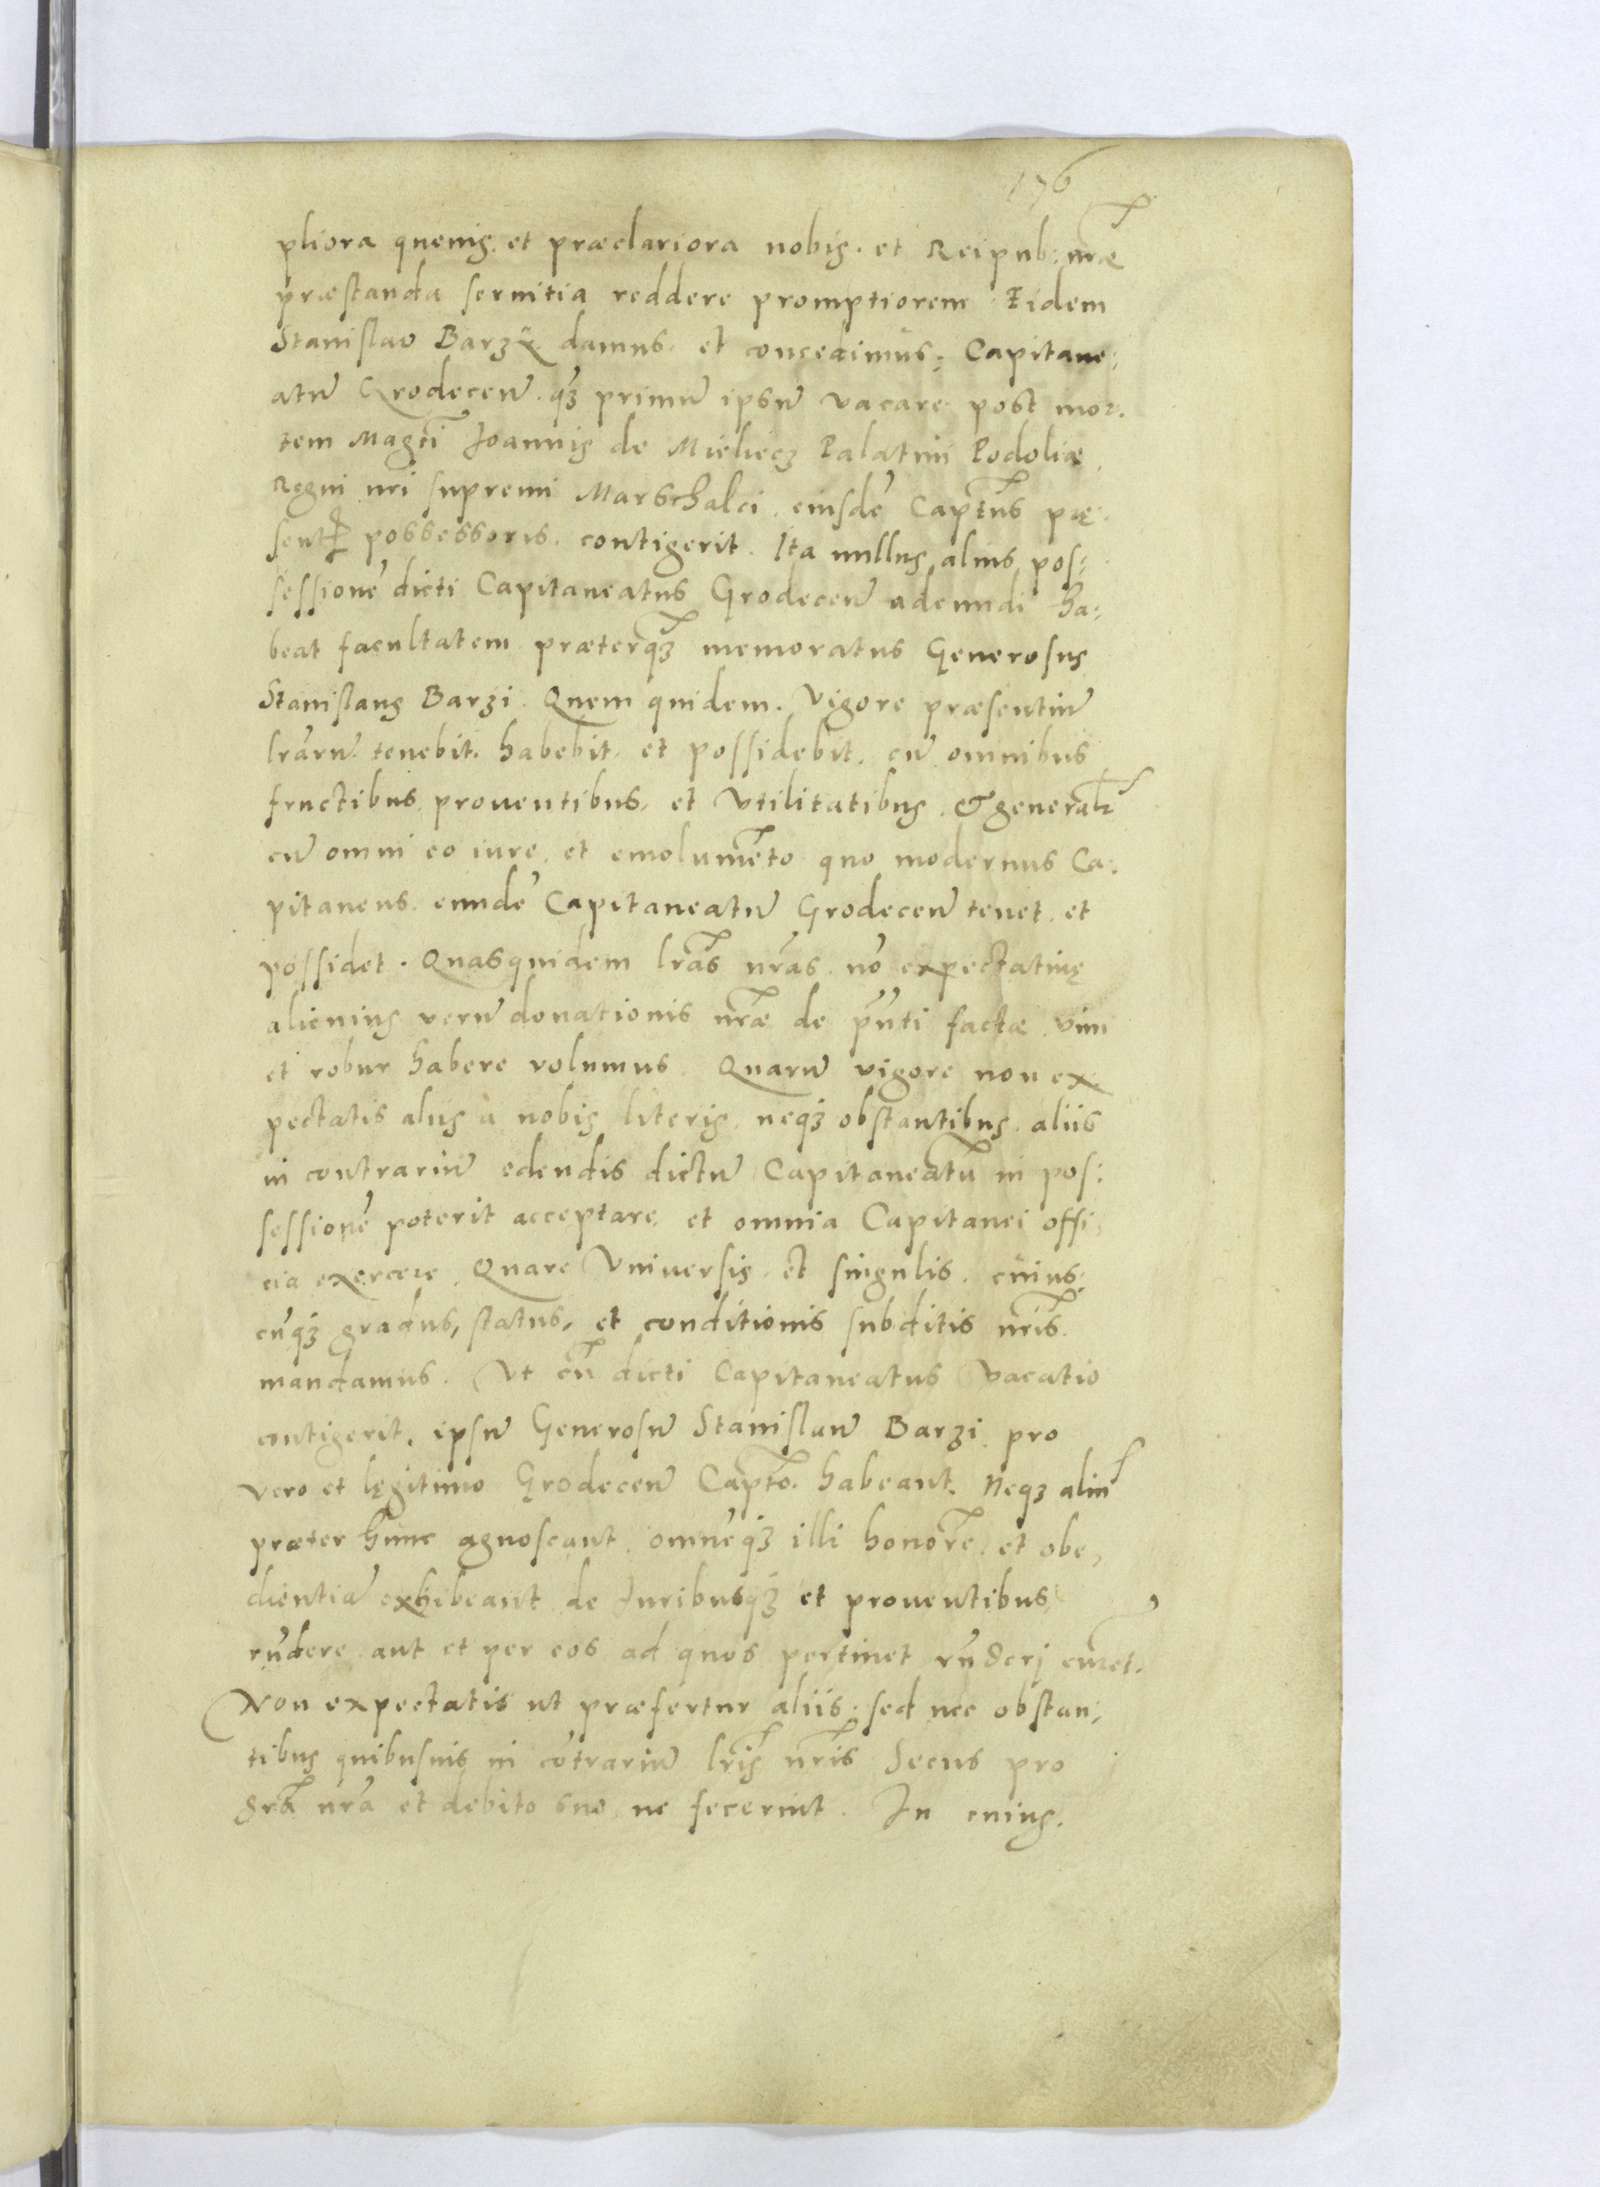 176
pliora quenis et præclariora nobis et Reipub: nr̃æ
præstanda seruitia reddere promptiorem Eidem
Stanislao Barzÿ damus et concedimus: Capitane:
atũ Grodeceñ. qz primũ ipsũ vacare post mor.
tem Magci Joannis de Mieliecz Palatini Podoliæ
Regni nri supremi Marschalci eiusdẽ Capt̃us præ
possessoris. contigerit. Ita nullus alius pos:
sessionẽ dicti Capitaneatus Grodeceñ adeundi ha:
beat facultatem præterqz̃ memoratus Generosus
Stanislaus Barzi. Quem quidem. Vigore præsentiũ
lr̃arũ tenebit. habebit. et possidebit. cũ omnibus
fructibus prouentibus. et vtilitatibus. & generalr̃
cũ omni eo iure. et emolumẽto quo modernus Ca:
pitaneus. eundẽ Capitaneatũ Grodeceñ tenet. et
possidet. Quasquidem lr̃as nr̃as nõ expectatiuę
alicuius verũ donationis nr̃æ de pñti factæ vim
et robur habere volumus. Quarũ vigore non ex
pectatis aliis à nobis literis. neqz obstantibus. aliis
in contrariũ edendis dictũ Capitaneatũ in pos:
sessionẽ poterit acceptare. et omnia Capitanei offi
cia exercere. Quare Vniuersis et singulis. cuius:
cũqz gradus, status, et conditionis subditis nr̃is.
mandamus. Vt cũ dicti Capitaneatus vacatio
contigerit. ipsũ Generosũ Stanislaũ Barzi pro
vero et lęgitimo Grodeceñ Capt̃o. habeant. Neqz aliũ
præter hunc agnoscant omnẽqz illi honorẽ. et obe,
dientiã exhibeant de Juribusqz et prouentibus
rñdere aut et per eos ad quos pertinet rñderj
Non expectatis ut præfertur aliis: sed nec obstan,
tibus quibusuis in cõtrariũ lr̃is nr̃is Secus pro
gr̃a nr̃a et debito suo ne fecerint. In cuius.